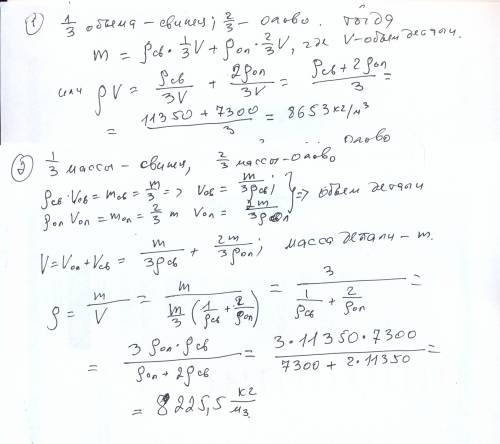 1) 1/3 объема - свинец; 2/3 - олово. тогда
m = ρсв · 1/3 V + ρол · 2/3 V, где V - объем детали.
или ρV = ρсв/3V + 2ρол/3V = (ρсв + 2ρол)/3 =
= (11350 + 7300)/3 = 8653 кг/м³
2) 1/3 массы - свинец, 2/3 массы - олово
ρсв · Vсв = mсв = m/3 => Vсв = m/3ρсв;
ρол Vол = mол = 2/3 m Vол = 2m/3ρол } => объем детали
V = Vол + Vсв = m/3ρсв + 2m/3ρол; масса детали - m.
ρ = m/V = m/(m/3 (1/ρсв + 2/ρол)) = 3/(1/ρсв + 2/ρол) =
= 3ρол · ρсв/(ρол + 2ρсв) = 3 · 11350 · 7300/(7300 + 2 · 11350) =
= 8225,5 кг/м3.